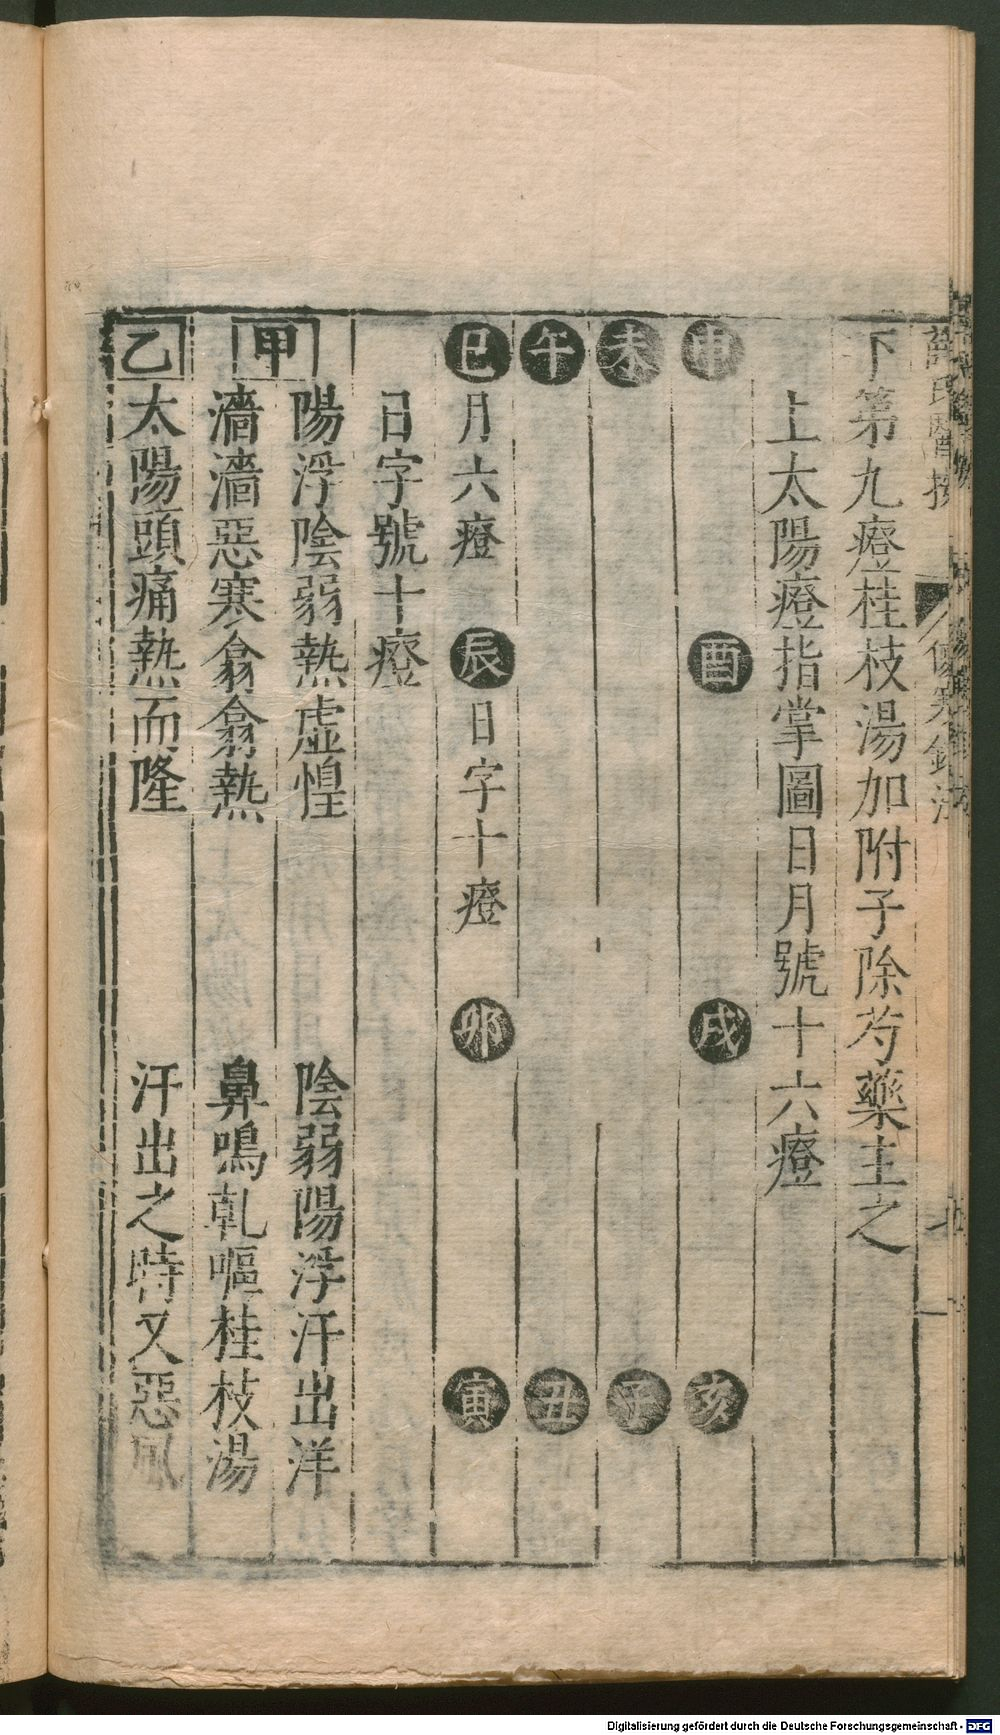 下第九證桂枝湯加附子除芍藥主之
上太陽證指掌圖日月號十六證
申 酉 戌 亥
未 子
午 丑
巳 月六證 辰 日字十證 卯 寅
日字號十證
陽浮陰弱熱虛惶 陰弱陽浮汗出洋
甲 濇濇惡寒翕翕熱 鼻鳴乾嘔桂枝湯
乙 太陽頭痛熱而隆 汗出之時又惡風
Digitalisierung gefördert durch die Deutsche Forschungsgemeinschaft - DFG